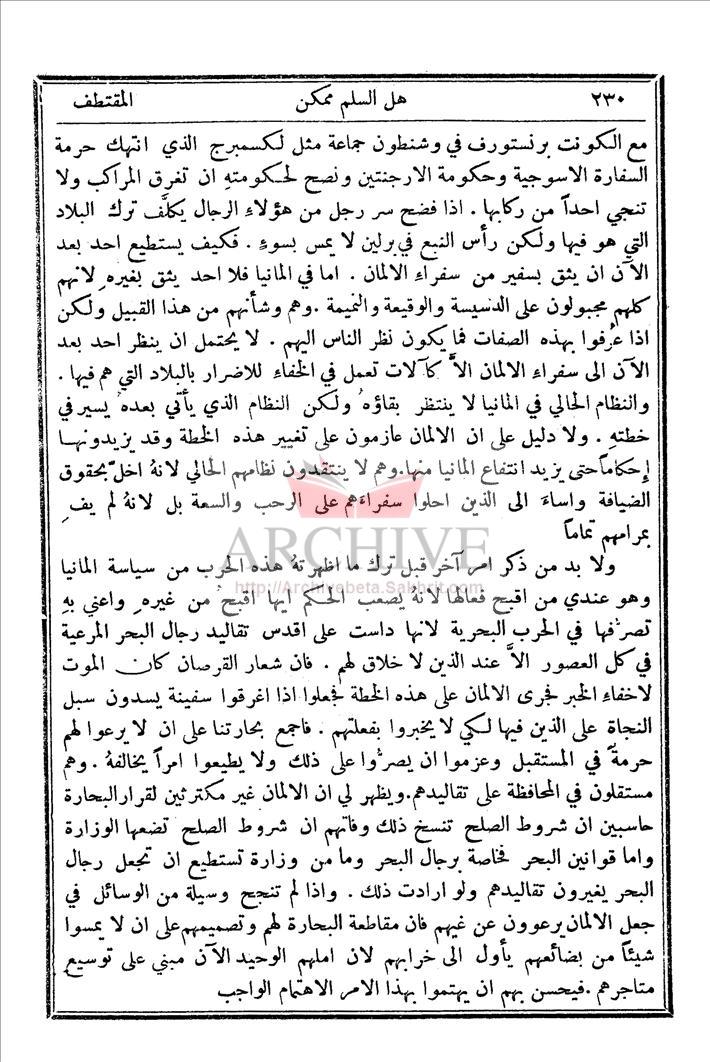 ٢٣٠ هل السلم ممكن المقتطف
مع الكونت برنستورف في وشنطون جماعة مثل لكسمبرج الذي انتهك حرمة
السفارة الاسوجية وحكومة الارجنتين ونصح لحكومتهِ ان تغرق المراكب ولا
تنجي احداً من ركابها . اذا فضح سر رجل من هؤلاءِ الرجال يكلَّف ترك البلاد
التي هو فيها ولكن رأس النبع في برلين لا يمس بسوءٍ . فكيف يستطيع احد بعد
الآن ان يثق بسفير من سفراءِ الالمان . اما في المانيا فلا احد يثق بغيرهِ لانهم
كلهم مجبولون على الدسيسة والوقيعة والنميمة . وهم وشأنهم من هذا القبيل ولكن
اذا عُرفوا بهذه الصفات فما يكون نظر الناس اليهم . لا يحتمل ان ينظر احد بعد
الآن الى سفراءِ الالمان الاَّ كآلات تعمل في الخفاءِ للاضرار بالبلاد التي هم فيها .
والنظام الحالي في المانيا لا ينتظر بقاؤهُ ولكن النظام الذي يأتي بعدهُ يسير في
خطتهِ . ولا دليل على ان الالمان عازمون على تغيير هذه الخطة وقد يزيدونها
إحكاماً حتى يزيد انتفاع المانيا منها . وهم لا ينتقدون نظامهم الحالي لانهُ اخلّ بحقوق
الضيافة واساءَ الى الذين احلوا سفراءَهم على الرحب والسعة بل لانهُ لم يفِ
بمرامهم تماماً
ARCHIVE
http://Archivebeta.Sakhrit.com
ولا بد من ذكر امر آخر قبل ترك ما اظهرتهُ هذه الحرب من سياسة المانيا
وهو عندي من اقبح فعالها لانهُ يصعب الحكم ايها اقبح من غيرهِ واعني بهِ
تصرُّفها في الحرب البحرية لانها داست على اقدس تقاليد رجال البحر المرعية
في كل العصور الاَّ عند الذين لا خلاق لهم . فان شعار القرصان كان الموت
لاخفاءِ الخبر فجرى الالمان على هذه الخطة فجعلوا اذا اغرقوا سفينة يسدون سبل
النجاة على الذين فيها لكي لا يخبروا بفعلتهم . فاجمع بحارتنا على ان لا يرعوا لهم
حرمةً في المستقبل وعزموا ان يصرُّوا على ذلك ولا يطيعوا امراً يخالفهُ . وهم
مستقلون في المحافظة على تقاليدهم . ويظهر لي ان الالمان غير مكترثين لقرار البحارة
حاسبين ان شروط الصلح تنسخ ذلك وفاتهم ان شروط الصلح تضعها الوزارة
واما قوانين البحر فخاصة برجال البحر وما من وزارة تستطيع ان تجعل رجال
البحر يغيرون تقاليدهم ولو ارادت ذلك . واذا لم تنجح وسيلة من الوسائل في
جعل الالمان يرعوون عن غيهم فان مقاطعة البحارة لهم وتصميمهم على ان لا يمسوا
شيئاً من بضائعهم يأول الى خرابهم لان املهم الوحيد الآن مبني على توسيعِ
متاجرهم . فيحسن بهم ان يهتموا بهذا الامر الاهتمام الواجب